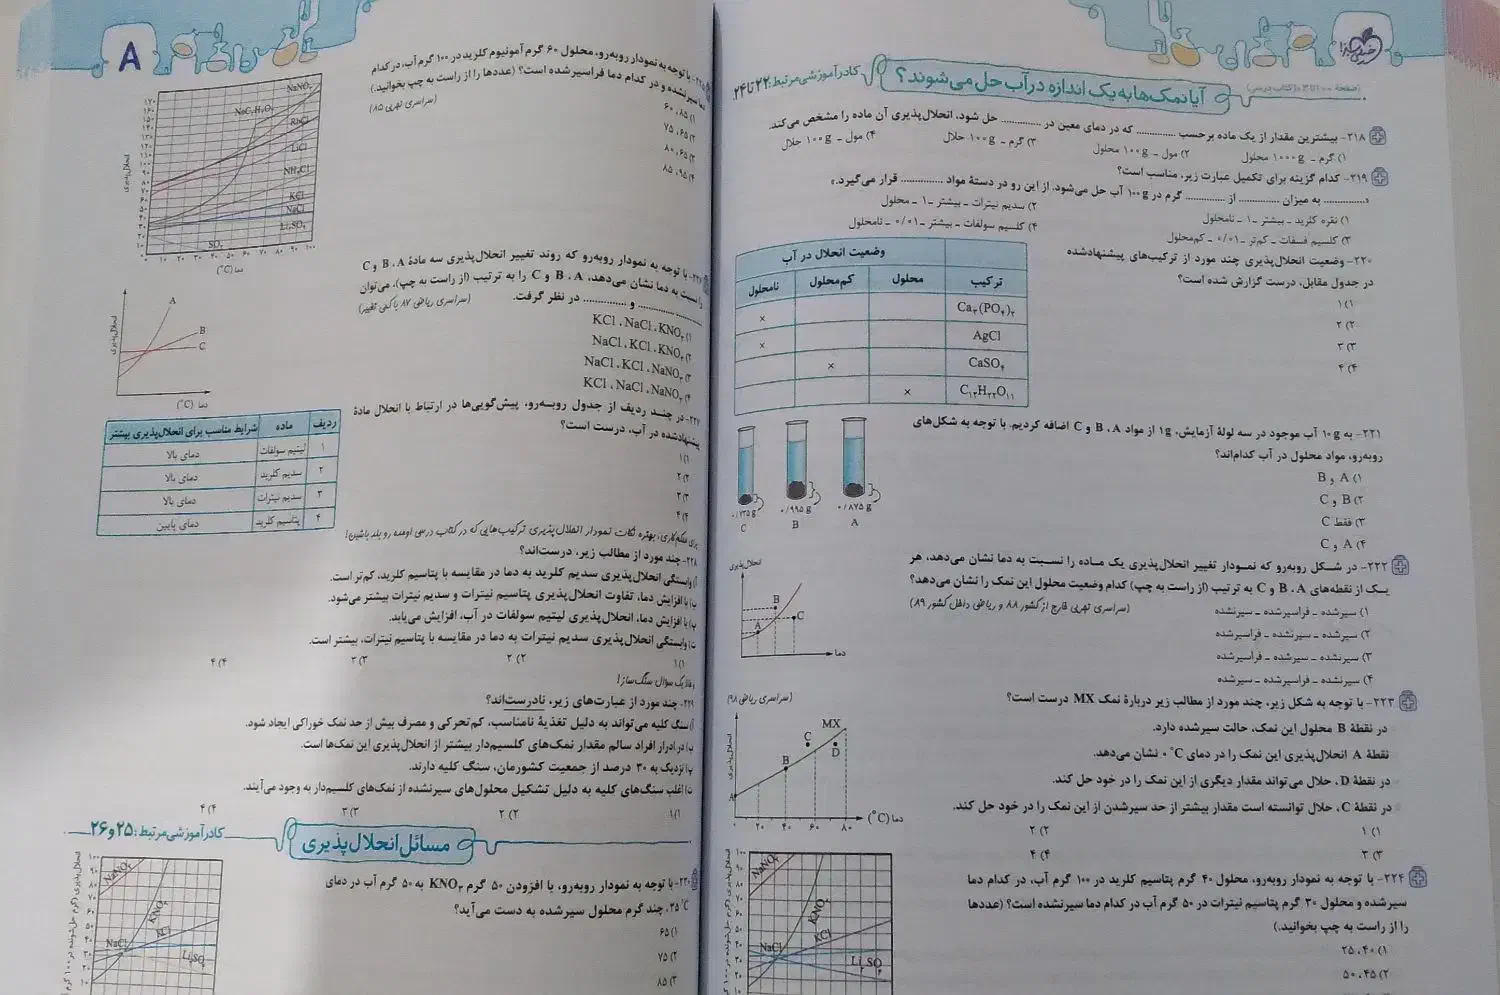 (صفحهٔ ۱۰۰ تا ۱۰۳ کتاب درسی)
آیا نمک‌ها به یک اندازه در آب حل می‌شوند؟
کادر آموزشی مرتبط: ۲۲ تا ۲۴
۲۱۸- بیشترین مقدار از یک ماده برحسب ............ که در دمای معین در ............ حل شود، انحلال‌پذیری آن ماده را مشخص می‌کند.
۱) گرم ـ ۱۰۰۰g محلول
۲) مول ـ ۱۰۰g محلول
۳) گرم ـ ۱۰۰g حلال
۴) مول ـ ۱۰۰g حلال
۲۱۹- کدام گزینه برای تکمیل عبارت زیر، مناسب است؟
«............ به میزان ............ از ............ گرم در ۱۰۰g آب حل می‌شود. از این رو در دستهٔ مواد ............ قرار می‌گیرد.»
۱) نقره کلرید ـ بیشتر ـ ۱ ـ نامحلول
۲) سدیم نیترات ـ بیشتر ـ ۱ ـ محلول
۳) کلسیم فسفات ـ کم‌تر ـ ۰/۰۱ ـ کم‌محلول
۴) کلسیم سولفات ـ بیشتر ـ ۰/۰۱ ـ نامحلول
۲۲۰- وضعیت انحلال‌پذیری چند مورد از ترکیب‌های پیشنهادشده
در جدول مقابل، درست گزارش شده است؟
۱) ۱
۲) ۲
۳) ۳
۴) ۴
وضعیت انحلال در آب
ترکیب محلول کم‌محلول نامحلول
Ca۳(PO۴)۲ ×
AgCl ×
CaSO۴ ×
C۱۲H۲۲O۱۱ ×
۲۲۱- به ۱۰g آب موجود در سه لولهٔ آزمایش، ۱g از مواد A، B و C اضافه کردیم. با توجه به شکل‌های
روبه‌رو، مواد محلول در آب کدام‌اند؟
۱) A و B
۲) B و C
۳) فقط C
۴) A و C
۰/۷۳۵g ۰/۹۹۵g ۰/۸۷۵g
C B A
۲۲۲- در شکل روبه‌رو که نمودار تغییر انحلال‌پذیری یک ماده را نسبت به دما نشان می‌دهد، هر
یک از نقطه‌های A، B و C به ترتیب (از راست به چپ) کدام وضعیت محلول این نمک را نشان می‌دهد؟
(سراسری تجربی خارج از کشور ۸۸ و ریاضی داخل کشور ۸۹)
۱) سیرشده ـ فراسیرشده ـ سیرنشده
۲) سیرشده ـ سیرنشده ـ فراسیرشده
۳) سیرنشده ـ سیرشده ـ فراسیرشده
۴) سیرنشده ـ فراسیرشده ـ سیرشده
انحلال‌پذیری
B
C
A
دما
۲۲۳- با توجه به شکل زیر، چند مورد از مطالب زیر دربارهٔ نمک MX درست است؟
(سراسری ریاضی ۹۸)
در نقطهٔ B محلول این نمک، حالت سیرشده دارد.
نقطهٔ A انحلال‌پذیری این نمک را در دمای ۰°C نشان می‌دهد.
در نقطهٔ D، حلال می‌تواند مقدار دیگری از این نمک را در خود حل کند.
در نقطهٔ C، حلال توانسته است مقدار بیشتر از حد سیرشدن از این نمک را در خود حل کند.
۱) ۱
۲) ۲
۳) ۳
۴) ۴
انحلال‌پذیری
MX
C
D
B
A
۰ ۲۰ ۴۰ ۶۰ ۸۰
دما (°C)
۲۲۴- با توجه به نمودار روبه‌رو، محلول ۴۰ گرم پتاسیم کلرید در ۱۰۰ گرم آب، در کدام دما
سیرشده و محلول ۳۰ گرم پتاسیم نیترات در ۵۰ گرم آب در کدام دما سیرنشده است؟ (عددها
را از راست به چپ بخوانید.)
۱) ۴۰، ۲۵
۲) ۴۵، ۵۰
NaNO۳
KNO۳
KCl
NaCl
Li۲SO۴
A
۲۲۵- با توجه به نمودار روبه‌رو، محلول ۶۰ گرم آمونیوم کلرید در ۱۰۰ گرم آب، در کدام
دما سیرنشده و در کدام دما فراسیرشده است؟ (عددها را از راست به چپ بخوانید.)
(سراسری تجربی ۸۵)
۱) ۸۵، ۶۰
۲) ۶۵، ۷۵
۳) ۶۵، ۸۰
۴) ۹۵، ۸۵
انحلال‌پذیری
NaNO۳
RbCl
LiCl
NH۴Cl
KCl
NaCl
Li۲SO۴
SO۲
۰ ۱۰ ۲۰ ۳۰ ۴۰ ۵۰ ۶۰ ۷۰ ۸۰ ۹۰ ۱۰۰
دما (°C)
۲۲۶- با توجه به نمودار روبه‌رو که روند تغییر انحلال‌پذیری سه مادهٔ A، B و C
را نسبت به دما نشان می‌دهد، A، B و C را به ترتیب (از راست به چپ)، می‌توان
............ و ............ در نظر گرفت.
(سراسری ریاضی ۸۷ با کمی تغییر)
۱) KCl ، NaCl ، KNO۳
۲) NaCl ، KCl ، KNO۳
۳) NaCl ، KCl ، NaNO۳
۴) KCl ، NaCl ، NaNO۳
انحلال‌پذیری
A
B
C
دما (°C)
۲۲۷- در چند ردیف از جدول روبه‌رو، پیش‌گویی‌ها در ارتباط با انحلال مادهٔ
پیشنهادشده در آب، درست است؟
۱) ۱
۲) ۲
۳) ۳
۴) ۴
ردیف ماده شرایط مناسب برای انحلال‌پذیری بیشتر
۱ لیتیم سولفات دمای بالا
۲ سدیم کلرید دمای بالا
۳ سدیم نیترات دمای بالا
۴ پتاسیم کلرید دمای پایین
برای محکم‌کاری، بهتره نکات نمودار انحلال‌پذیری ترکیب‌هایی که در کتاب درسی اومده رو بلد باشین!
۲۲۸- چند مورد از مطالب زیر، درست‌اند؟
آ) وابستگی انحلال‌پذیری سدیم کلرید به دما در مقایسه با پتاسیم کلرید، کم‌تر است.
ب) با افزایش دما، تفاوت انحلال‌پذیری پتاسیم نیترات و سدیم نیترات بیشتر می‌شود.
پ) با افزایش دما، انحلال‌پذیری لیتیم سولفات در آب، افزایش می‌یابد.
ت) وابستگی انحلال‌پذیری سدیم نیترات به دما در مقایسه با پتاسیم نیترات، بیشتر است.
۱) ۱
۲) ۲
۳) ۳
۴) ۴
یک سؤال سنگ‌ساز!
۲۲۹- چند مورد از عبارت‌های زیر، نادرست‌اند؟
آ) سنگ کلیه می‌تواند به دلیل تغذیهٔ نامناسب، کم‌تحرکی و مصرف بیش از حد نمک خوراکی ایجاد شود.
ب) در ادرار افراد سالم مقدار نمک‌های کلسیم‌دار بیشتر از انحلال‌پذیری این نمک‌ها است.
پ) نزدیک به ۳۰ درصد از جمعیت کشورمان، سنگ کلیه دارند.
ت) اغلب سنگ‌های کلیه به دلیل تشکیل محلول‌های سیرنشده از نمک‌های کلسیم‌دار به وجود می‌آیند.
۱) ۱
۲) ۲
۳) ۳
۴) ۴
مسائل انحلال‌پذیری
کادر آموزشی مرتبط: ۲۵ و ۲۶
۲۳۰- با توجه به نمودار روبه‌رو، با افزودن ۵۰ گرم KNO۳ به ۵۰ گرم آب در دمای
۳۵°C، چند گرم محلول سیرشده به دست می‌آید؟
۱) ۶۵
۲) ۷۵
۳) ۸۵
NaNO۳
KNO۳
KCl
NaCl
Li۲SO۴